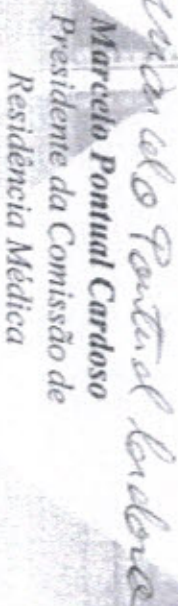 Marcelo Pontual Cardoso
Marcelo Pontual Cardoso
Presidente da Comissão de
Residência Médica